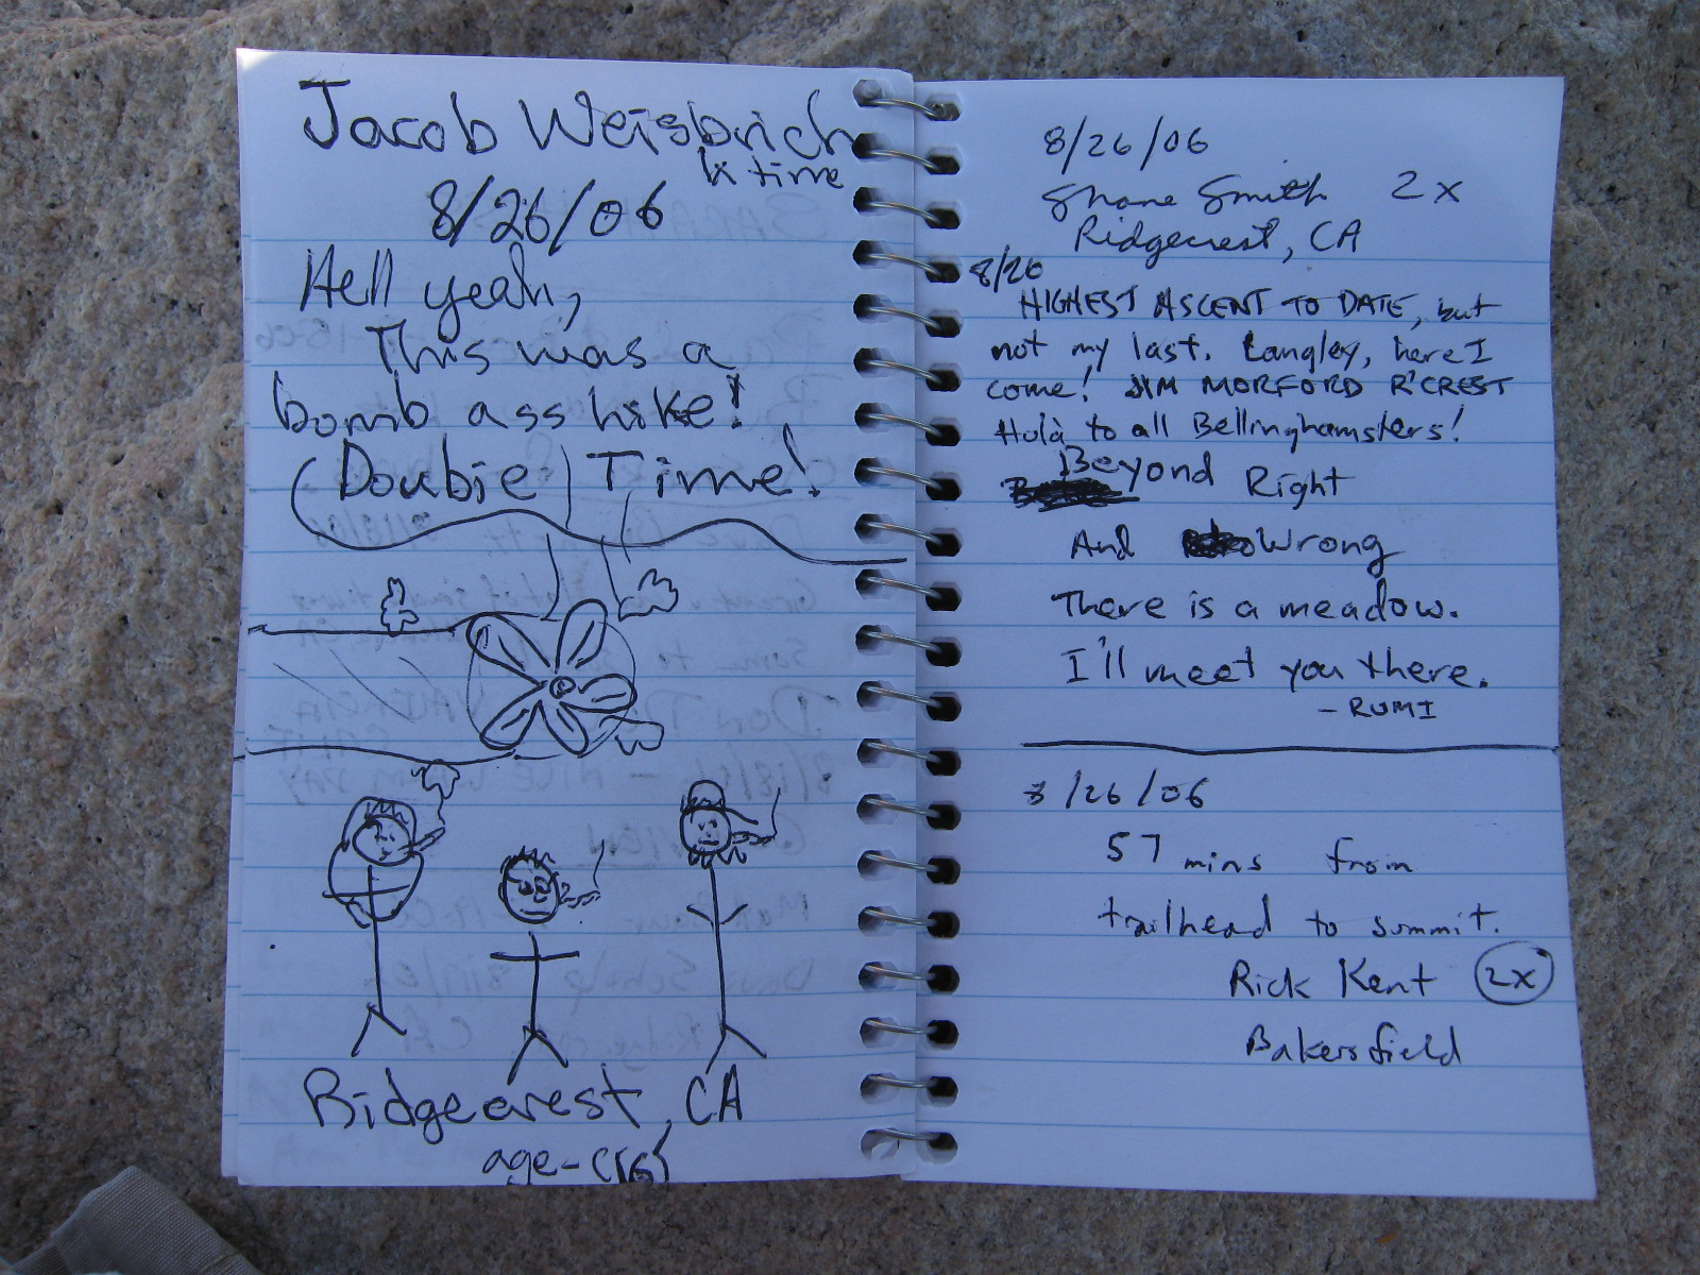 Jacob Weisbrich
1x time
8/26/06
Hell yeah,
This was a
bomb ass hike!
(Doubie) Time!
Ridgecrest, CA
age-(16)
8/26/06
Shane Smith 2x
Ridgecrest, CA
8/26
HIGHEST ASCENT TO DATE, but
not my last. Langley, here I
come! JIM MORFORD R'CREST
Hulà to all Bellinghamsters!
Beyond Right
And Wrong
There is a meadow.
I'll meet you there.
- RUMI
8/26/06
57 mins from
trailhead to summit.
Rick Kent 2x
Bakersfield